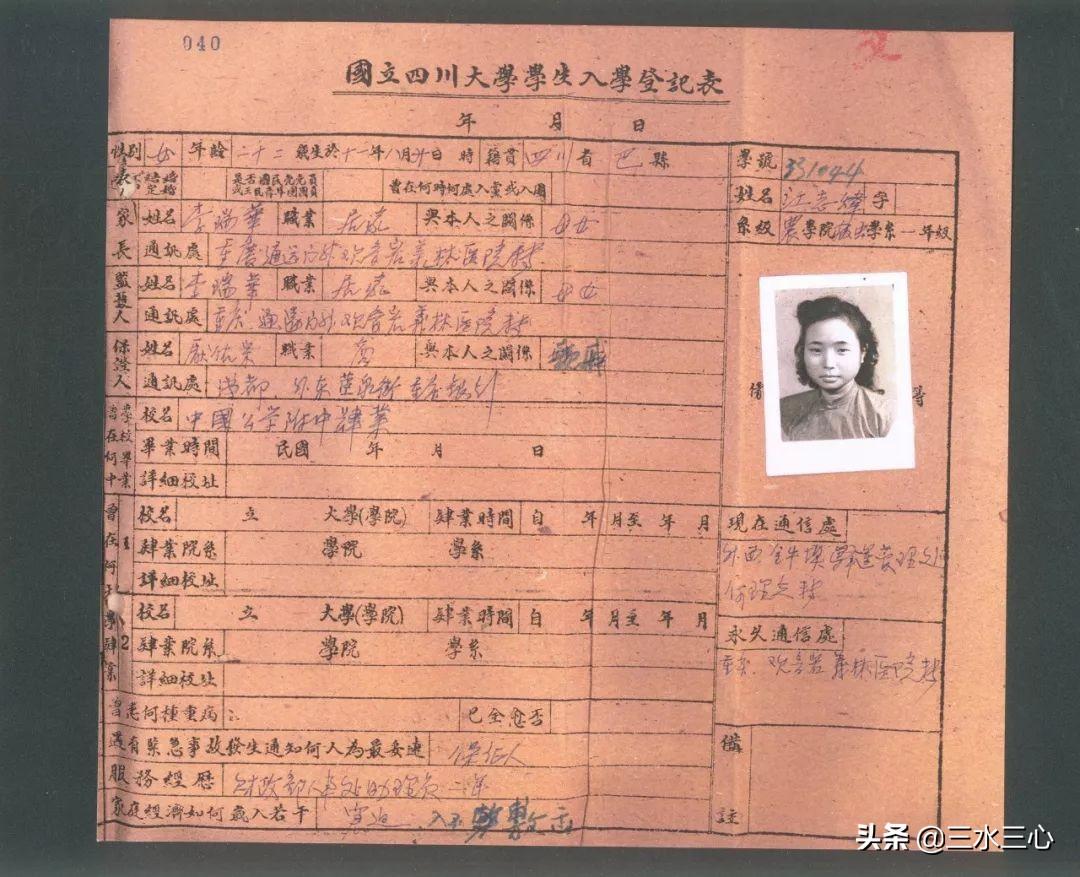 040
國立四川大學學生入學登記表
年 月 日
性別 女 年齡 二十二 歲生於十一年八月廿日 時 籍貫 四川 省 巴 縣
學號 331044
是否國民黨黨員或三民青年團團員 曾在何時何處入黨或入團
姓名 江志煒 字
家長 姓名 李瑞華 職業 居家 與本人之關係 母女
系級 農學院 學系一年級
通訊處 重慶通远门外观音岩義林医院轉
監護人 姓名 李瑞華 職業 居家 與本人之關係 母女
通訊處 重庆 通远门外观音岩義林医院轉
保證人 姓名 職業 商 與本人之關係
通訊處 成都 外東
曾在何中學校畢業 校名 中國公学附中肄業
畢業時間 民國 年 月 日
詳細校址
備
曾在何大學肄業
1 校名 立 大學(學院) 肄業時間 自 年 月至 年 月
現在通信處
肄業院系 學院 學系
外西 金牛壩 管理处
詳細校址
何理立 轉
2 校名 立 大學(學院) 肄業時間 自 年 月至 年 月
永久通信處
肄業院系 學院 學系
重庆 观音岩 義林医院轉
詳細校址
曾患何種重病 已全愈否
遇有緊急事故發生通知何人為最妥速 保証人
備註
服務經歷 財政部人事处助理員 二年
家庭經濟如何歲入若干 窘迫 入不敷出
头条 @三水三心